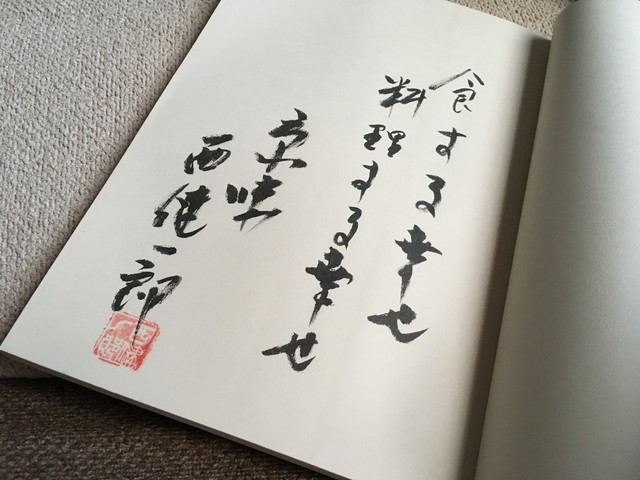 食する幸せ
料理する幸せ
京味
西健一郎